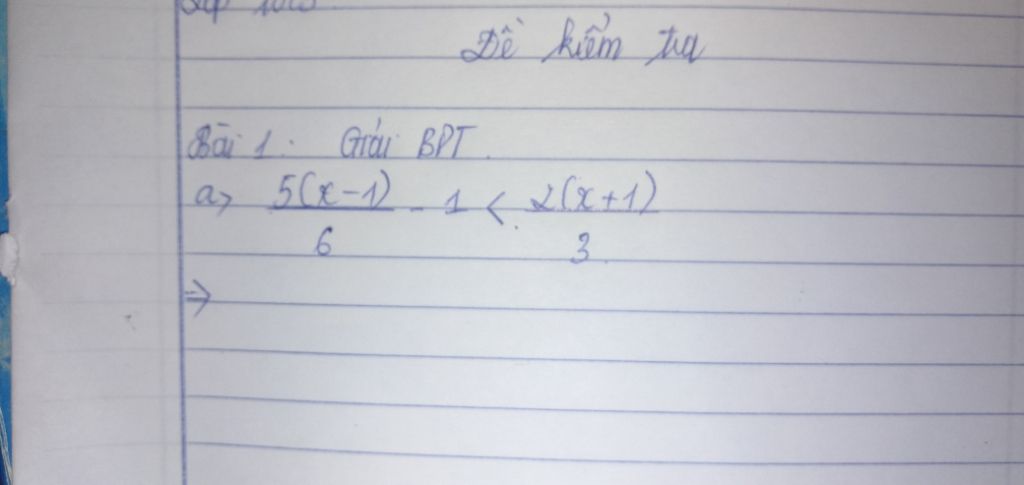 Đề kiểm tra
Bài 1: Giải BPT.
a> 5(x-1)/6 - 1 < 2(x+1)/3
=>